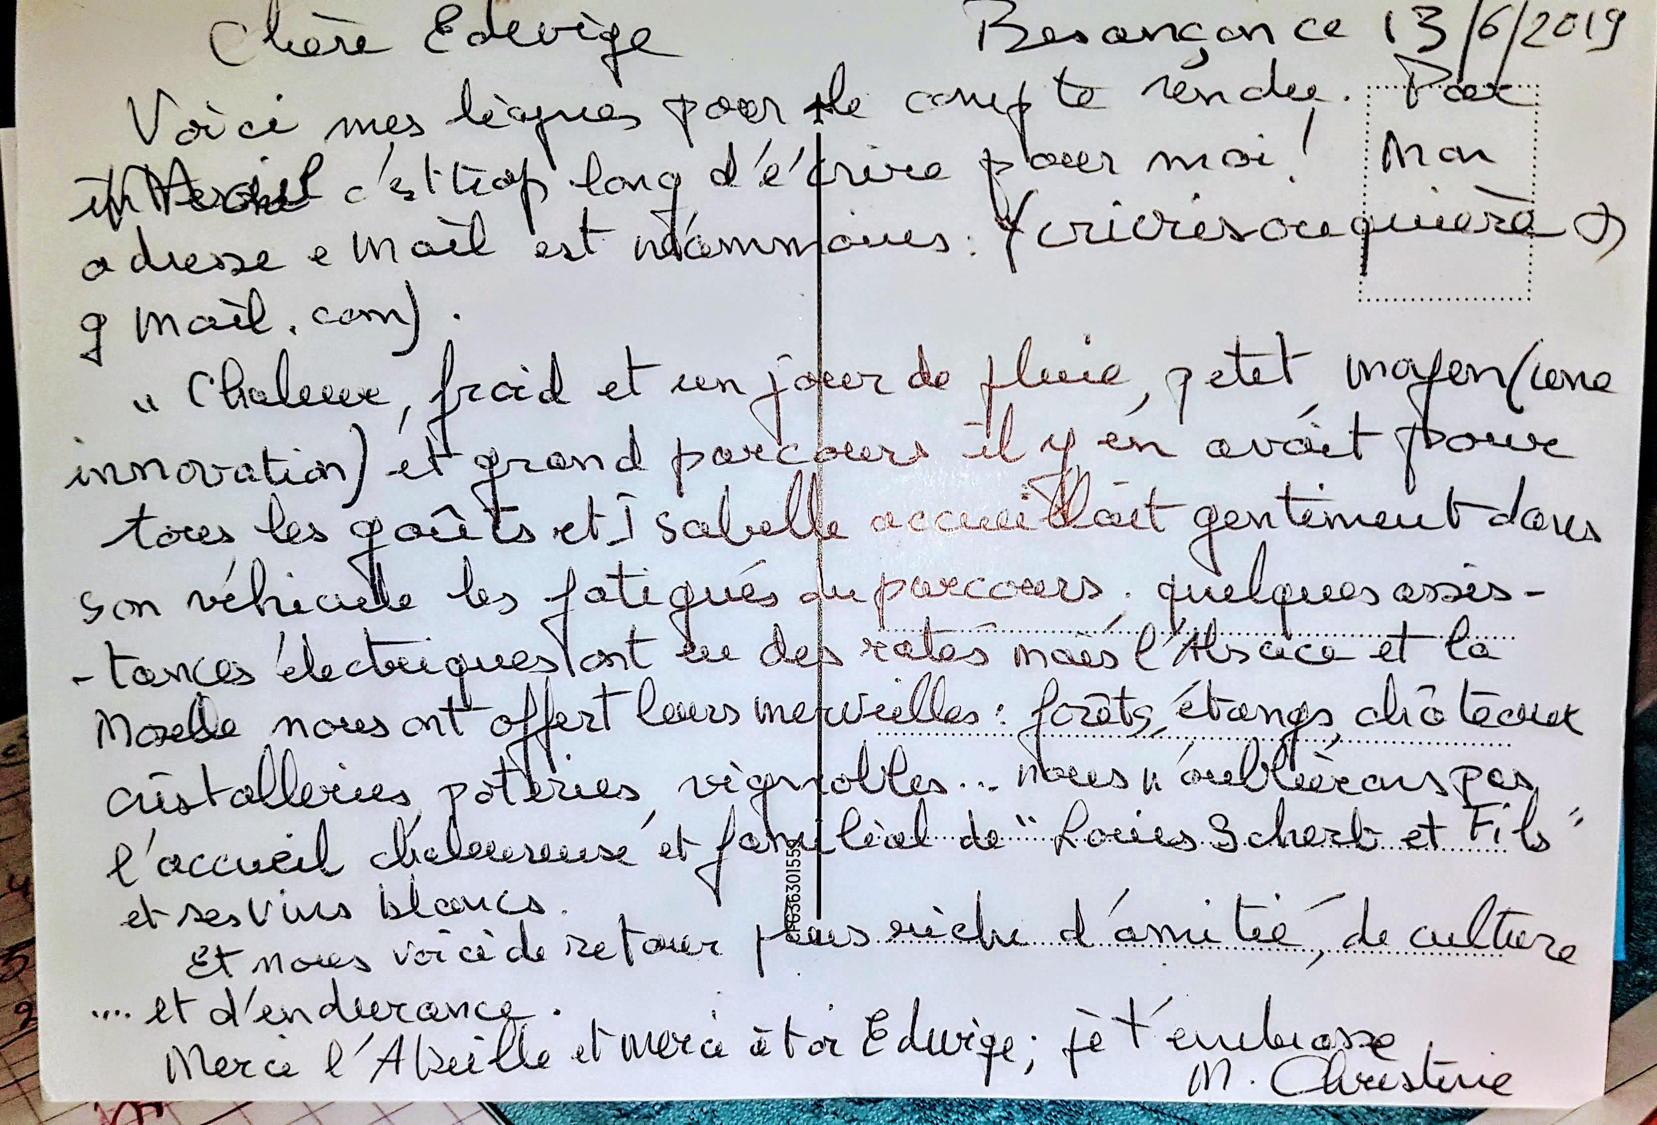 Chère Edevige Besançance 13/6/2019
Voici mes lignes pour le compte rendu. Par
c'est trop long d'écrire pour moi! Mon
adresse e mail est néammoins: (cricrisouquière @
g mail.com).
" Chaleur, froid et un jour de pluie, petit moyen (une
innovation) et grand parcours il y en avait pour
tous les goûts et Isabelle accueillait gentiment dans
son véhicule les fatigués du parcours. quelques assis-
-tances électriques ont eu des ratés mais l'Alsace et la
Moselle nous ont offert leurs merveilles: forêts, étangs, châteaux
cristalleries, poteries, vignobles... nous n'oublierons pas
l'accueil chaleureuse et familial de "Louis Scherb et Fils"
et ses vins blancs.
Et nous voici de retour plus riche d'amitié, de culture
.... et d'endurance.
Merci l'Abeille et merci à toi Edwige; je t'embrasse
M. Christine
FG36301559